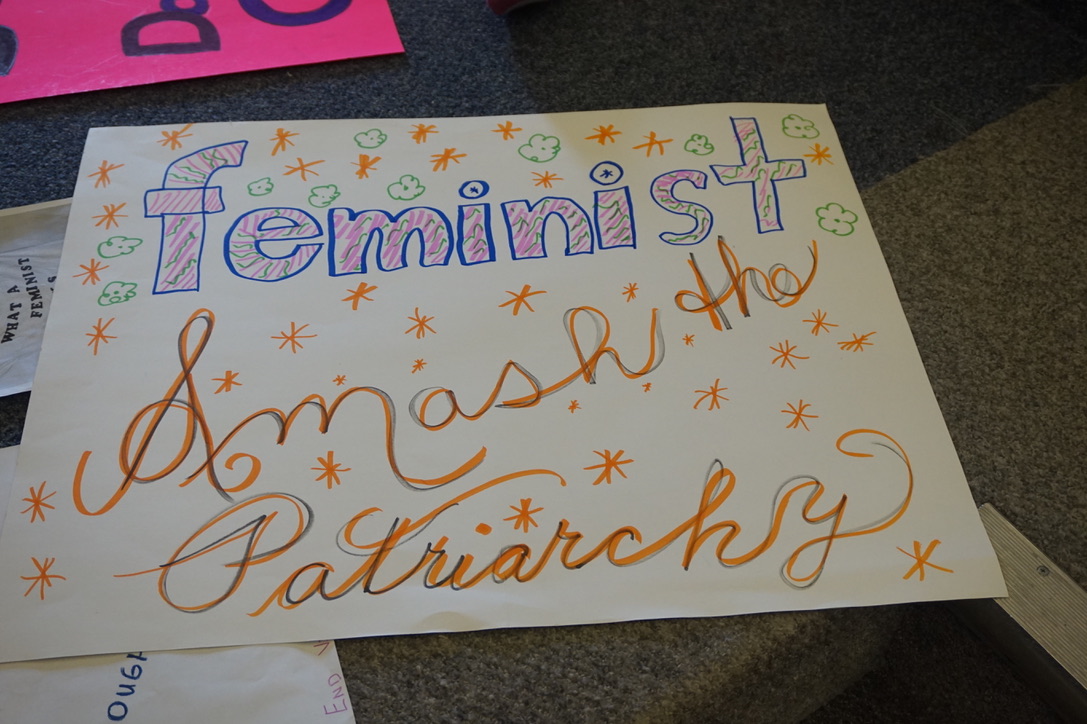 Do
WHAT A
FEMINIST
feminist
Smash the
Patriarchy
END